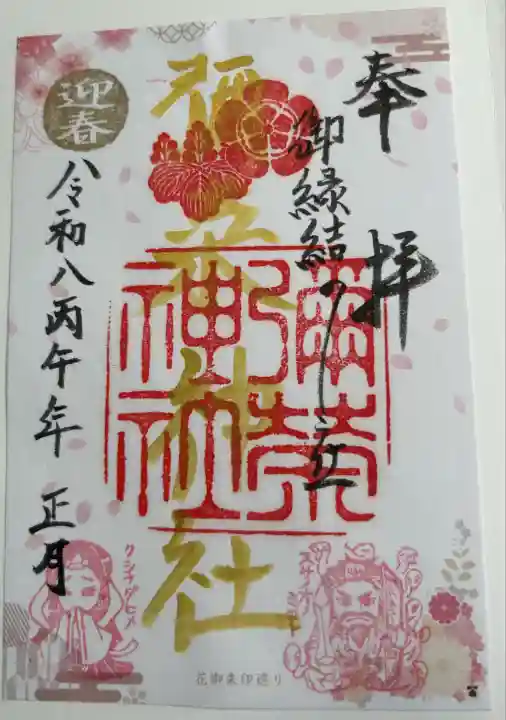 奉拝
御縁結
弥栄神社
彌榮神社
迎春
令和八丙午年 正月
クシナダヒメ
スサノオ
花御朱印巡り